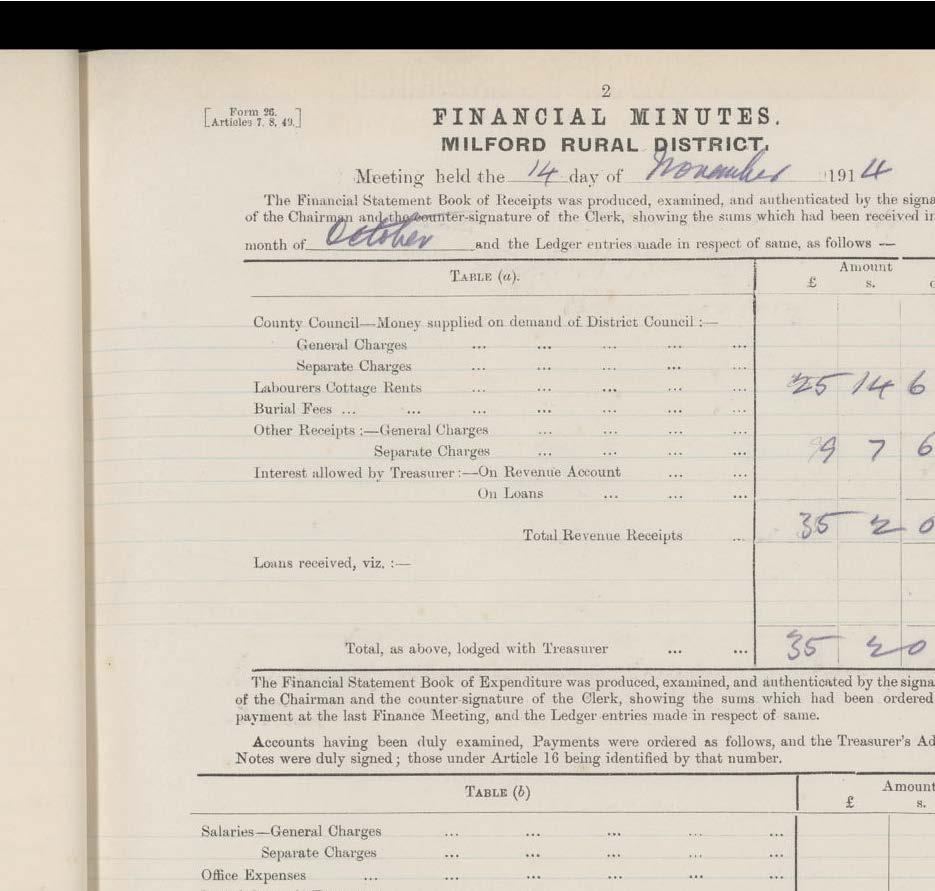 2
[Form 26. Articles 7. 8, 49.]
FINANCIAL MINUTES.
MILFORD RURAL DISTRICT.
Meeting held the 14 day of November 1914
The Financial Statement Book of Receipts was produced, examined, and authenticated by the signa
of the Chairman and the counter-signature of the Clerk, showing the sums which had been received in
month of October and the Ledger entries made in respect of same, as follows —
TABLE (a).
Amount
£ s. d
County Council—Money supplied on demand of District Council :—
General Charges ... ... ... ... ...
Separate Charges ... ... ... ... ...
Labourers Cottage Rents ... ... ... ... ... 25 14 6
Burial Fees ... ... ... ... ... ... ...
Other Receipts :—General Charges ... ... ... ...
Separate Charges ... ... ... ... 9 7 6
Interest allowed by Treasurer :—On Revenue Account ... ...
On Loans ... ... ...
Total Revenue Receipts ... 35 2 0
Loans received, viz. :—
Total, as above, lodged with Treasurer ... ... 35 2 0
The Financial Statement Book of Expenditure was produced, examined, and authenticated by the signa
of the Chairman and the counter-signature of the Clerk, showing the sums which had been ordered
payment at the last Finance Meeting, and the Ledger entries made in respect of same.
Accounts having been duly examined, Payments were ordered as follows, and the Treasurer's Ad
Notes were duly signed; those under Article 16 being identified by that number.
TABLE (b)
Amount
£ s.
Salaries—General Charges ... ... ... ... ...
Separate Charges ... ... ... ... ...
Office Expenses ... ... ... ... ... ...